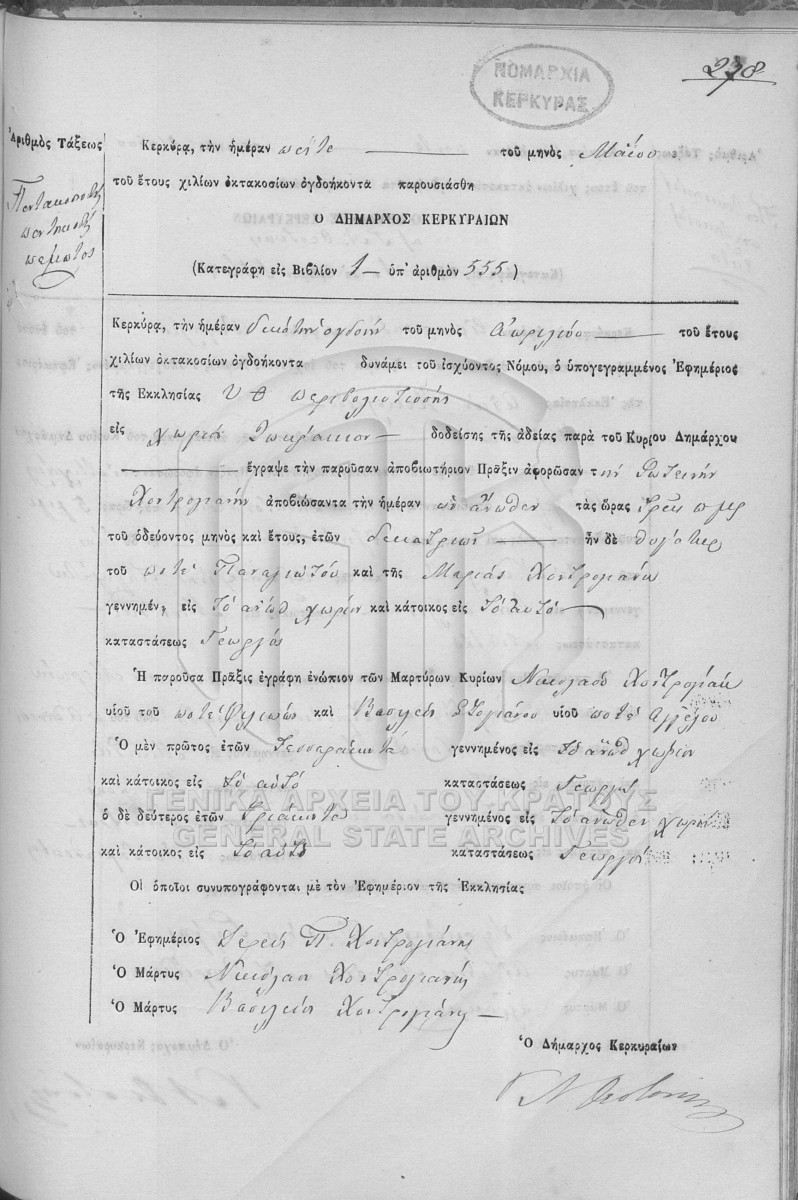 238
ΝΟΜΑΡΧΙΑ
ΚΕΡΚΥΡΑΣ
Ἀριθμὸς Τάξεως
Πεντακοσιοστὴ
πεντηκοστὴ
πεμπτος
Κερκύρᾳ, τὴν ἡμέραν πέντε τοῦ μηνὸς Μαΐου
τοῦ ἔτους χιλίων ὀκτακοσίων ὀγδοήκοντα παρουσιάσθη
Ο ΔΗΜΑΡΧΟΣ ΚΕΡΚΥΡΑΙΩΝ
(Κατεγράφη εἰς Βιβλίον 1 ὑπ' ἀριθμὸν 555)
Κερκύρᾳ, τὴν ἡμέραν δεκάτην ὀγδόην τοῦ μηνὸς Ἀπριλίου τοῦ ἔτους
χιλίων ὀκτακοσίων ὀγδοήκοντα δυνάμει τοῦ ἰσχύοντος Νόμου, ὁ ὑπογεγραμμένος Ἐφημέριος
τῆς Ἐκκλησίας Υ Θ περιβολιωτίσσης
εἰς χωρίον Σωκράκιον δοδείσης τῆς ἀδείας παρὰ τοῦ Κυρίου Δημάρχου
ἔγραψε τὴν παροῦσαν ἀποβιωτήριον Πρᾶξιν ἀφορῶσαν τὴν Φωτεινήν
Χοντρογιάνη ἀποβιώσαντα τὴν ἡμέραν ὡς ἄνωθεν τὰς ὥρας τρεῖς π μς
τοῦ ὁδεύοντος μηνὸς καὶ ἔτους, ἐτῶν δεκατριῶν ἦν δὲ θυγάτηρ
τοῦ ποτὲ Παναγιώτου καὶ τῆς Μαρίας Χοντρογιάνη
γεννημέν εἰς τὸ ἄνωθ χωρίον καὶ κάτοικος εἰς τὸ αὐτό
καταστάσεως Γεωργός
Ἡ παροῦσα Πρᾶξις ἐγράφη ἐνώπιον τῶν Μαρτύρων Κυρίων Νικολάου Χοντρογιάνη
υἱοῦ τοῦ ποτὲ Φιλιππῆ καὶ Βασιλείου υἱοῦ ποτὲ Ἀγγέλου
Ὁ μὲν πρῶτος ἐτῶν Τεσσαράκοντα γεννημένος εἰς τὸ ἄνωθ χωρίον
καὶ κάτοικος εἰς τὸ αὐτὸ καταστάσεως Γεωργός
ὁ δὲ δεύτερος ἐτῶν τριάκοντα γεννημένος εἰς τὸ ἄνωθεν χωρίον
καὶ κάτοικος εἰς τὸ αὐτὸ καταστάσεως Γεωργός
Οἱ ὁποῖοι συνυπογράφονται μὲ τὸν Ἐφημέριον τῆς Ἐκκλησίας
Ὁ Ἐφημέριος Ἱερεὺς Π. Χοντρογιάνης
Ὁ Μάρτυς Νικόλαος Χοντρογιανής
Ὁ Μάρτυς Βασίλειος Χοντρογιάνης
Ὁ Δήμαρχος Κερκυραίων
ΓΕΝΙΚΑ ΑΡΧΕΙΑ ΤΟΥ ΚΡΑΤΟΥΣ
GENERAL STATE ARCHIVES